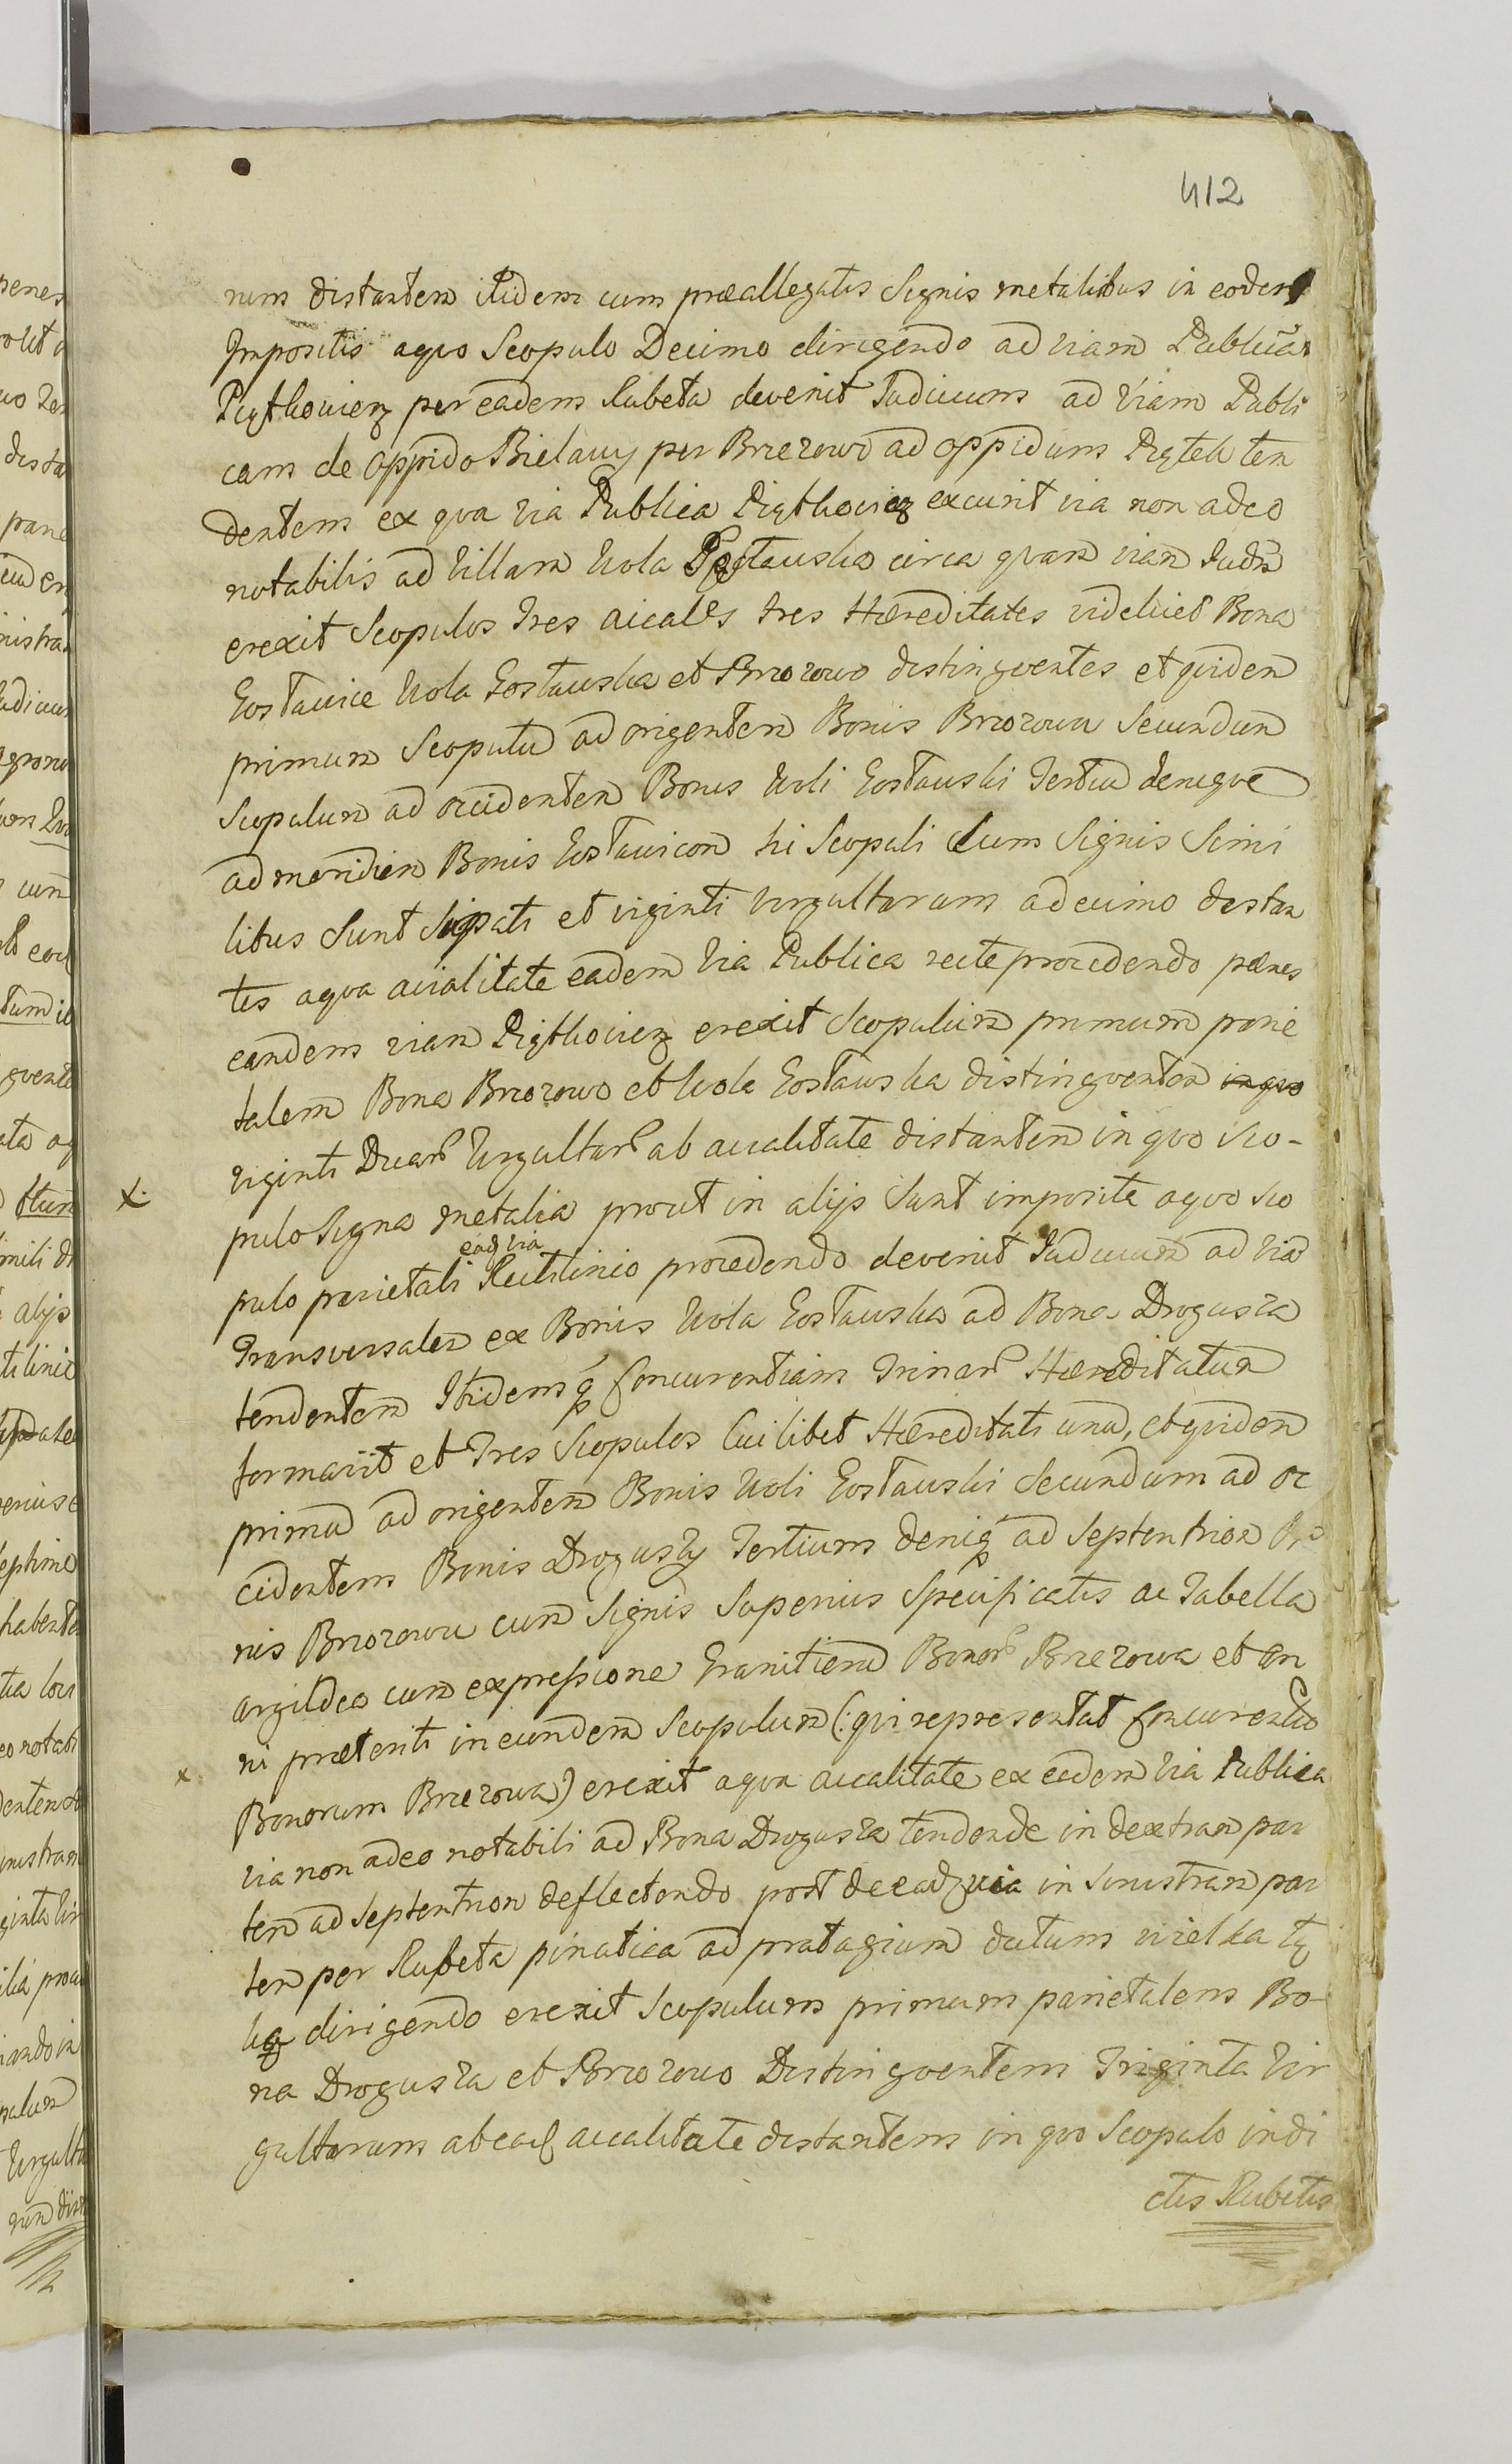 412
rum distantem itidem cum præallegatis Signis metalibus in eodem
Impositis aquo Scopulo Decimo dirigendo ad viam Publicã
Piątkowicz per eadem Rubeta devenit Judicium ad Viam Publi
cam de oppido Bielawy per Brzozowo ad oppidum Piątek ten
dentem ex qva via Publica Piątkowicz excurit via non adeo
notabilis ad Villam Wola Gostawska circa qvam viam Judm
erexit Scopulos Tres aicales tres Hæreditates videlicet Bona
Gostawice Wola Gostawska et Brzozowo distingventes et qvidem
primum Scopulũ ad origentem Bonis Brzozowu Secundum
Scopulum ad occidentem Bonis Woli Gostawski Tertiũ deniqve
ad meridiem Bonis Gostawicom hi Scopuli Cum Signis Simi
libus Sunt Sipati et viginti Virgultarum adecimo distan
tes aqva aicialitate eadem Via Publica recte procedendo pænes
eandem viam Piątkowicz erexit Scopulum primum parie
talem Bona Brzozowo et Wola Gostawska distingventem in qvo
viginti Duar Virgultar ab aicalitate distantem in qvo Sco-
pulo Signa metalia prout in alijs Sunt imposita aqvo Sco
eadq via
pulo parietali Rectilinio procedendo devenit Judicium ad viã
Transversalem ex Bonis Wola Gostawska ad Bona Drogusza
tendentem Itidemq Concurentiam Trinar Hæreditatum
formavit et Tres Scopulos Cuilibet Hæreditati unũ, et qvidem
primũ ad origentem Bonis Woli Gostawski Secundum ad oc
cidentem Bonis Droguszy Tertium deniq ad Septentrion Bo
nis Brzozowu cum Signis Superius Specificatis ac Tabella
argildea cum expressione Granitierũ Bonor Brzezowa et an
ni præteriti in eundem Scopulum (: qvi representat Concurentio
Bonorum Brzezowa) erexit aqva aicalitate ex eadem Via Publica
via non adeo notabili ad Bona Drogusza tendende in dextram par
tem ad Septentrion deflectendo post de eadq via in Sinistram par
tem per Rubeta pinatica ad pratagium dictum wielka łą
ką dirigendo erexit Scopulum primum parietalem Bo-
na Drogusza et Brzozowo Distingventem Triginta Vir
gultarum ab eadq aicalitate distantem in qvo Scopulo indi
ctis Rubetis